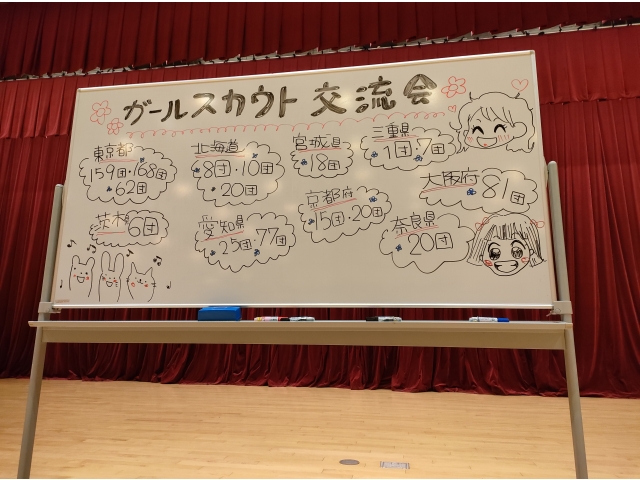 ガールスカウト 交流会
東京都
159団・168団
・62団
北海道
8団・10団
・20団
宮城県
18団
三重県
1団・7団
大阪府 81団
茨木 6団
愛知県
25団・77団
京都府
15団・20団
奈良県
20団